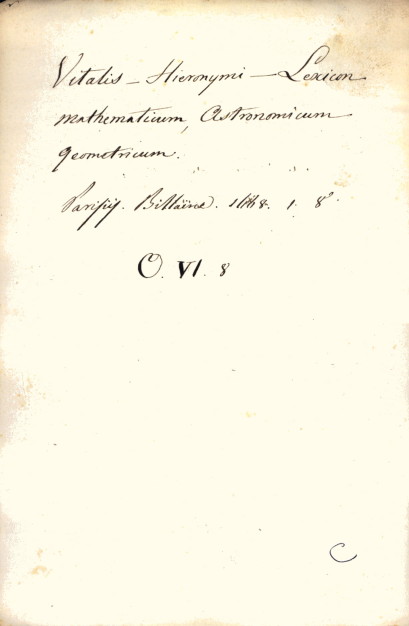 Vitalis – Hieronymi – Lexicon
mathematicum, Astronomicum
geometricum.
Parisijs. Billaine. 1668. 1. 8°.
O. VI. 8
C